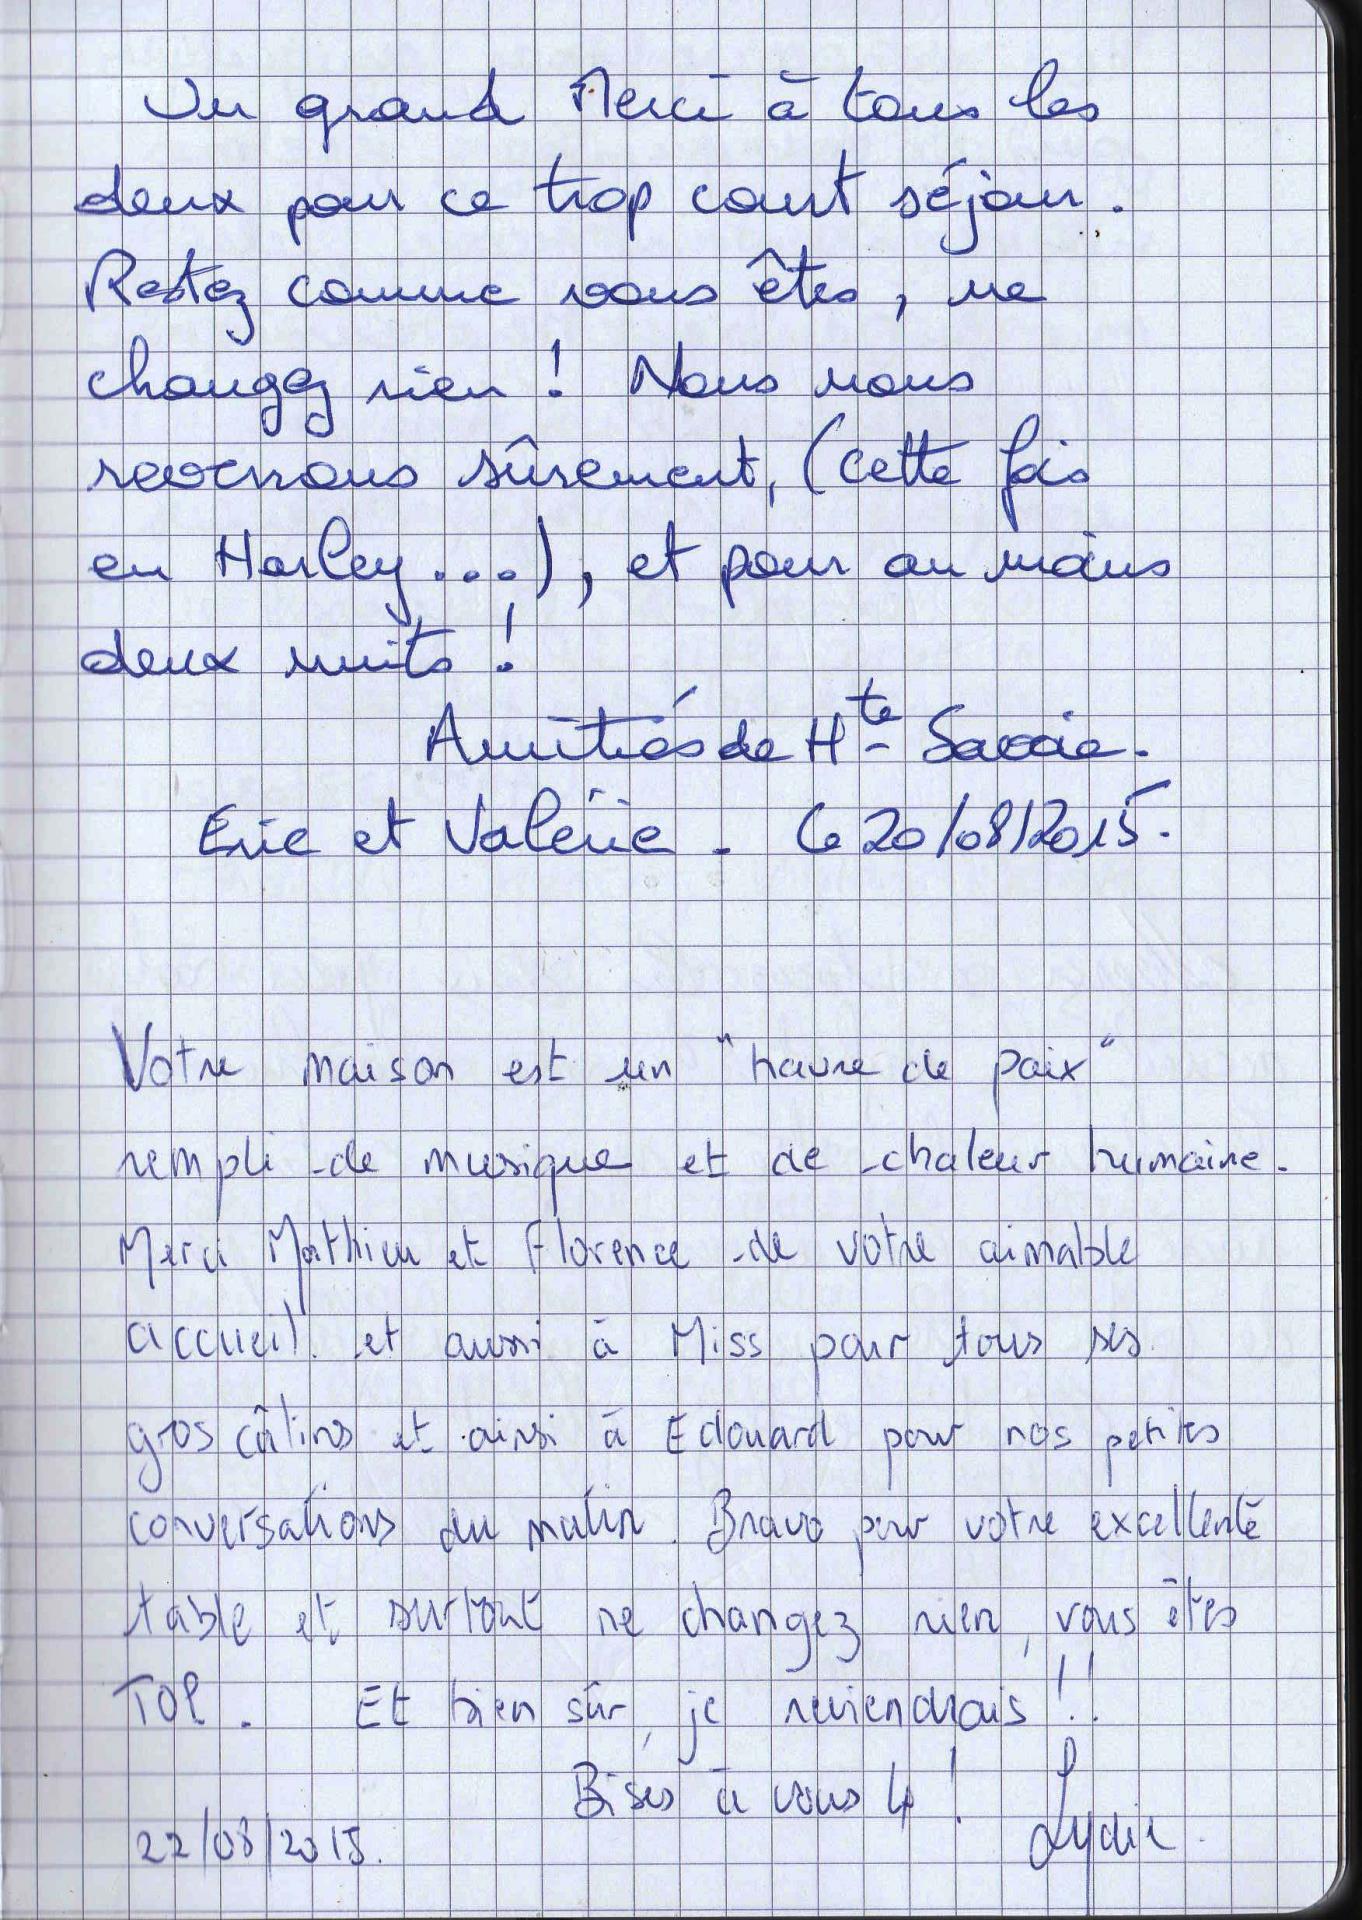 Un grand Merci à tous les
deux pour ce trop court séjour.
Restez comme vous êtes, ne
changez rien ! Nous nous
reverrons sûrement, (cette fois
en Harley...), et pour au moins
deux nuits !
Amitiés de Hte-Savoie.
Eric et Valérie. Le 20/08/2015.
Votre maison est un "havre de paix"
rempli de musique et de chaleur humaine.
Merci Mathieu et Florence de votre aimable
accueil et aussi à Miss pour tous ses
gros câlins et ainsi à Edouard pour nos petites
conversations du matin. Bravo pour votre excellente
table et surtout ne changez rien, vous êtes
TOP. Et bien sûr, je reviendrais !!
Bises à vous 4 !
22/08/2015. Lydie.